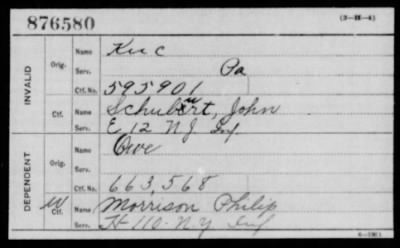 876580
(3-H-4)
INVALID
Orig.
Name
Serv. Pa
Ctf. No. 595901
Ctf.
Name Schubert, John
Serv. E 12 NJ Inf
DEPENDENT
Orig.
Name
Serv.
Ctf. No. 663,568
W
Ctf.
Name Morrison Philip
Serv. H-110-NY Inf